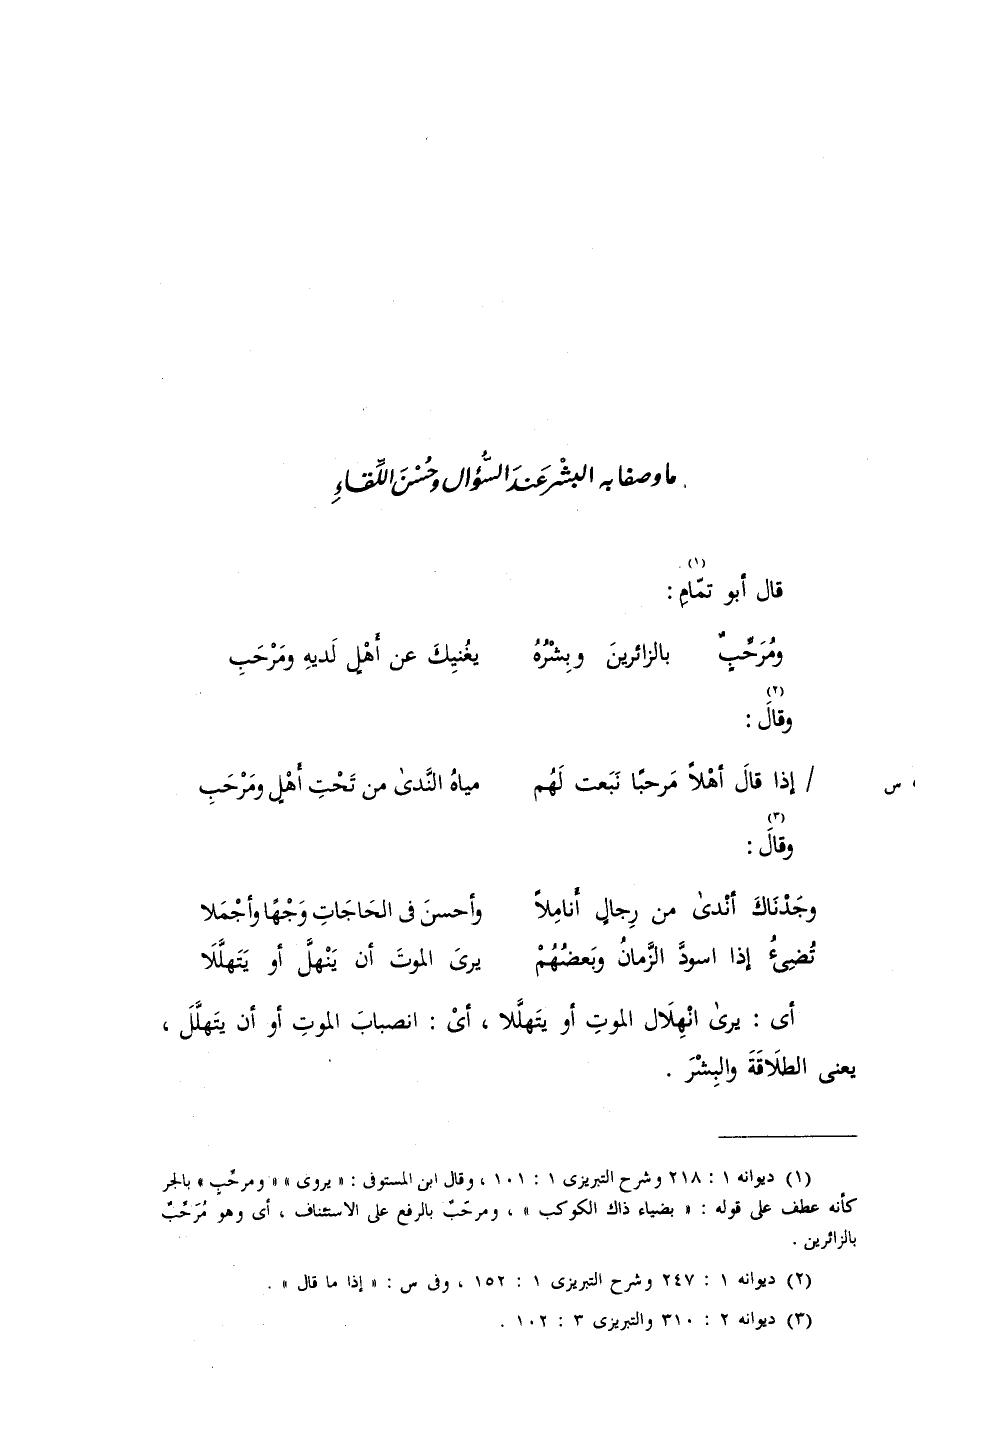 ما وصفا به البشْر عَندَ السُّؤال وحُسْنَ اللِّقاءِ
(١)
قال أبو تمّامِ :
ومُرَحِّبٌ بالزائرينَ وبِشْرُهُ يغُنيِكَ عن أَهْلٍ لَديهِ ومَرْحَبِ
(٢)
وقالَ :
/ إذا قالَ أهْلاً مَرحبًا نَبَعت لَهُم مياهُ النَّدىٰ من تَحْتِ أَهْلٍ ومَرْحَبِ
س
(٣)
وقالَ :
وجَدْنَاكَ أنْدىٰ من رِجالٍ أَنامِلاً وأحسنَ فى الحَاجَاتِ وَجْهًا وأجْمَلا
تُضِىءُ إذا اسودَّ الزَّمانُ وبَعضُهُمْ يرىَ الموتَ أن يَنْهلَّ أو يَتَهلَّلَا
أى : يرىٰ انْهِلَال الموتِ أو يتَهلَّلا ، أىْ : انصبابَ الموتِ أو أن يتَهلَّلَ ،
يعنى الطلَاقَةَ والبِشْرَ .
(١) ديوانه ١ : ٢١٨ وشرح التبريزى ١ : ١٠١ ، وقال ابن المستوفى : « يروى » « ومرحِّبٍ » بالجر
كأنه عطف على قوله : « بضياء ذاك الكوكب » ، ومرحّبٌ بالرفع على الاستئناف ، أى وهو مُرَحِّبٌ
بالزائرين .
(٢) ديوانه ١ : ٢٤٧ وشرح التبريزى ١ : ١٥٢ ، وفى س : « إذا ما قال » .
(٣) ديوانه ٢ : ٣١٠ والتبريزى ٣ : ١٠٢ .